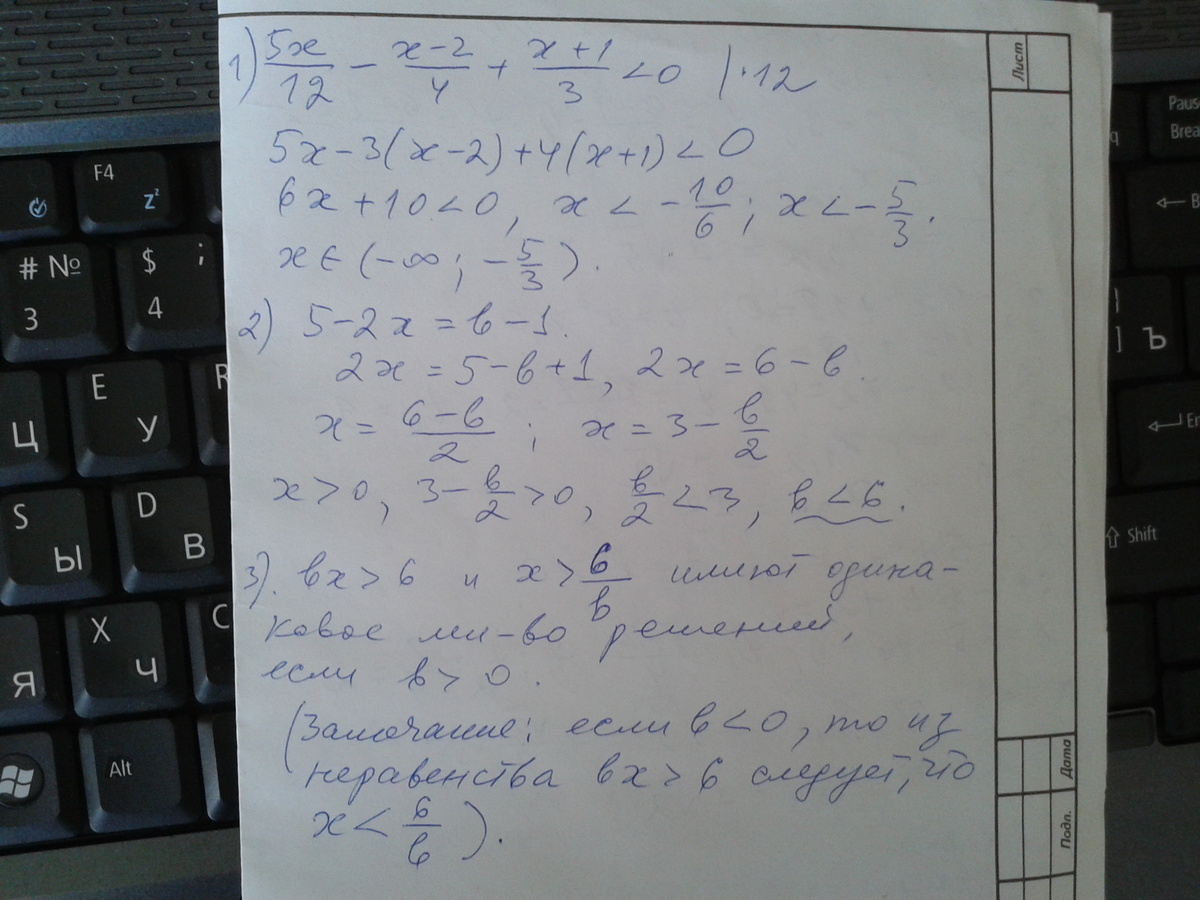 1) 5x/12 − (x−2)/4 + (x+1)/3 < 0 | ·12
5x−3(x−2)+4(x+1)<0
6x+10<0, x < −10/6; x < −5/3.
x∈(−∞; −5/3).
2) 5−2x=в−1.
2x=5−в+1, 2x=6−в.
x=(6−в)/2; x=3−в/2
x>0, 3−в/2>0, в/2<3, в<6.
3). вx>6 и x>6/в имеют одина-
ковое мн-во решений,
если в>0.
(Замечание: если в<0, то из
неравенства вx>6 следует, что
x<6/в).
Лист
Дата
Подп.
F4
z²
# №
3
$ ;
4
E
У
R
Ц
S
Ы
D
В
X
Ч
C
Я
Alt
Paus
Brea
q
B
]
Ъ
En
Shift